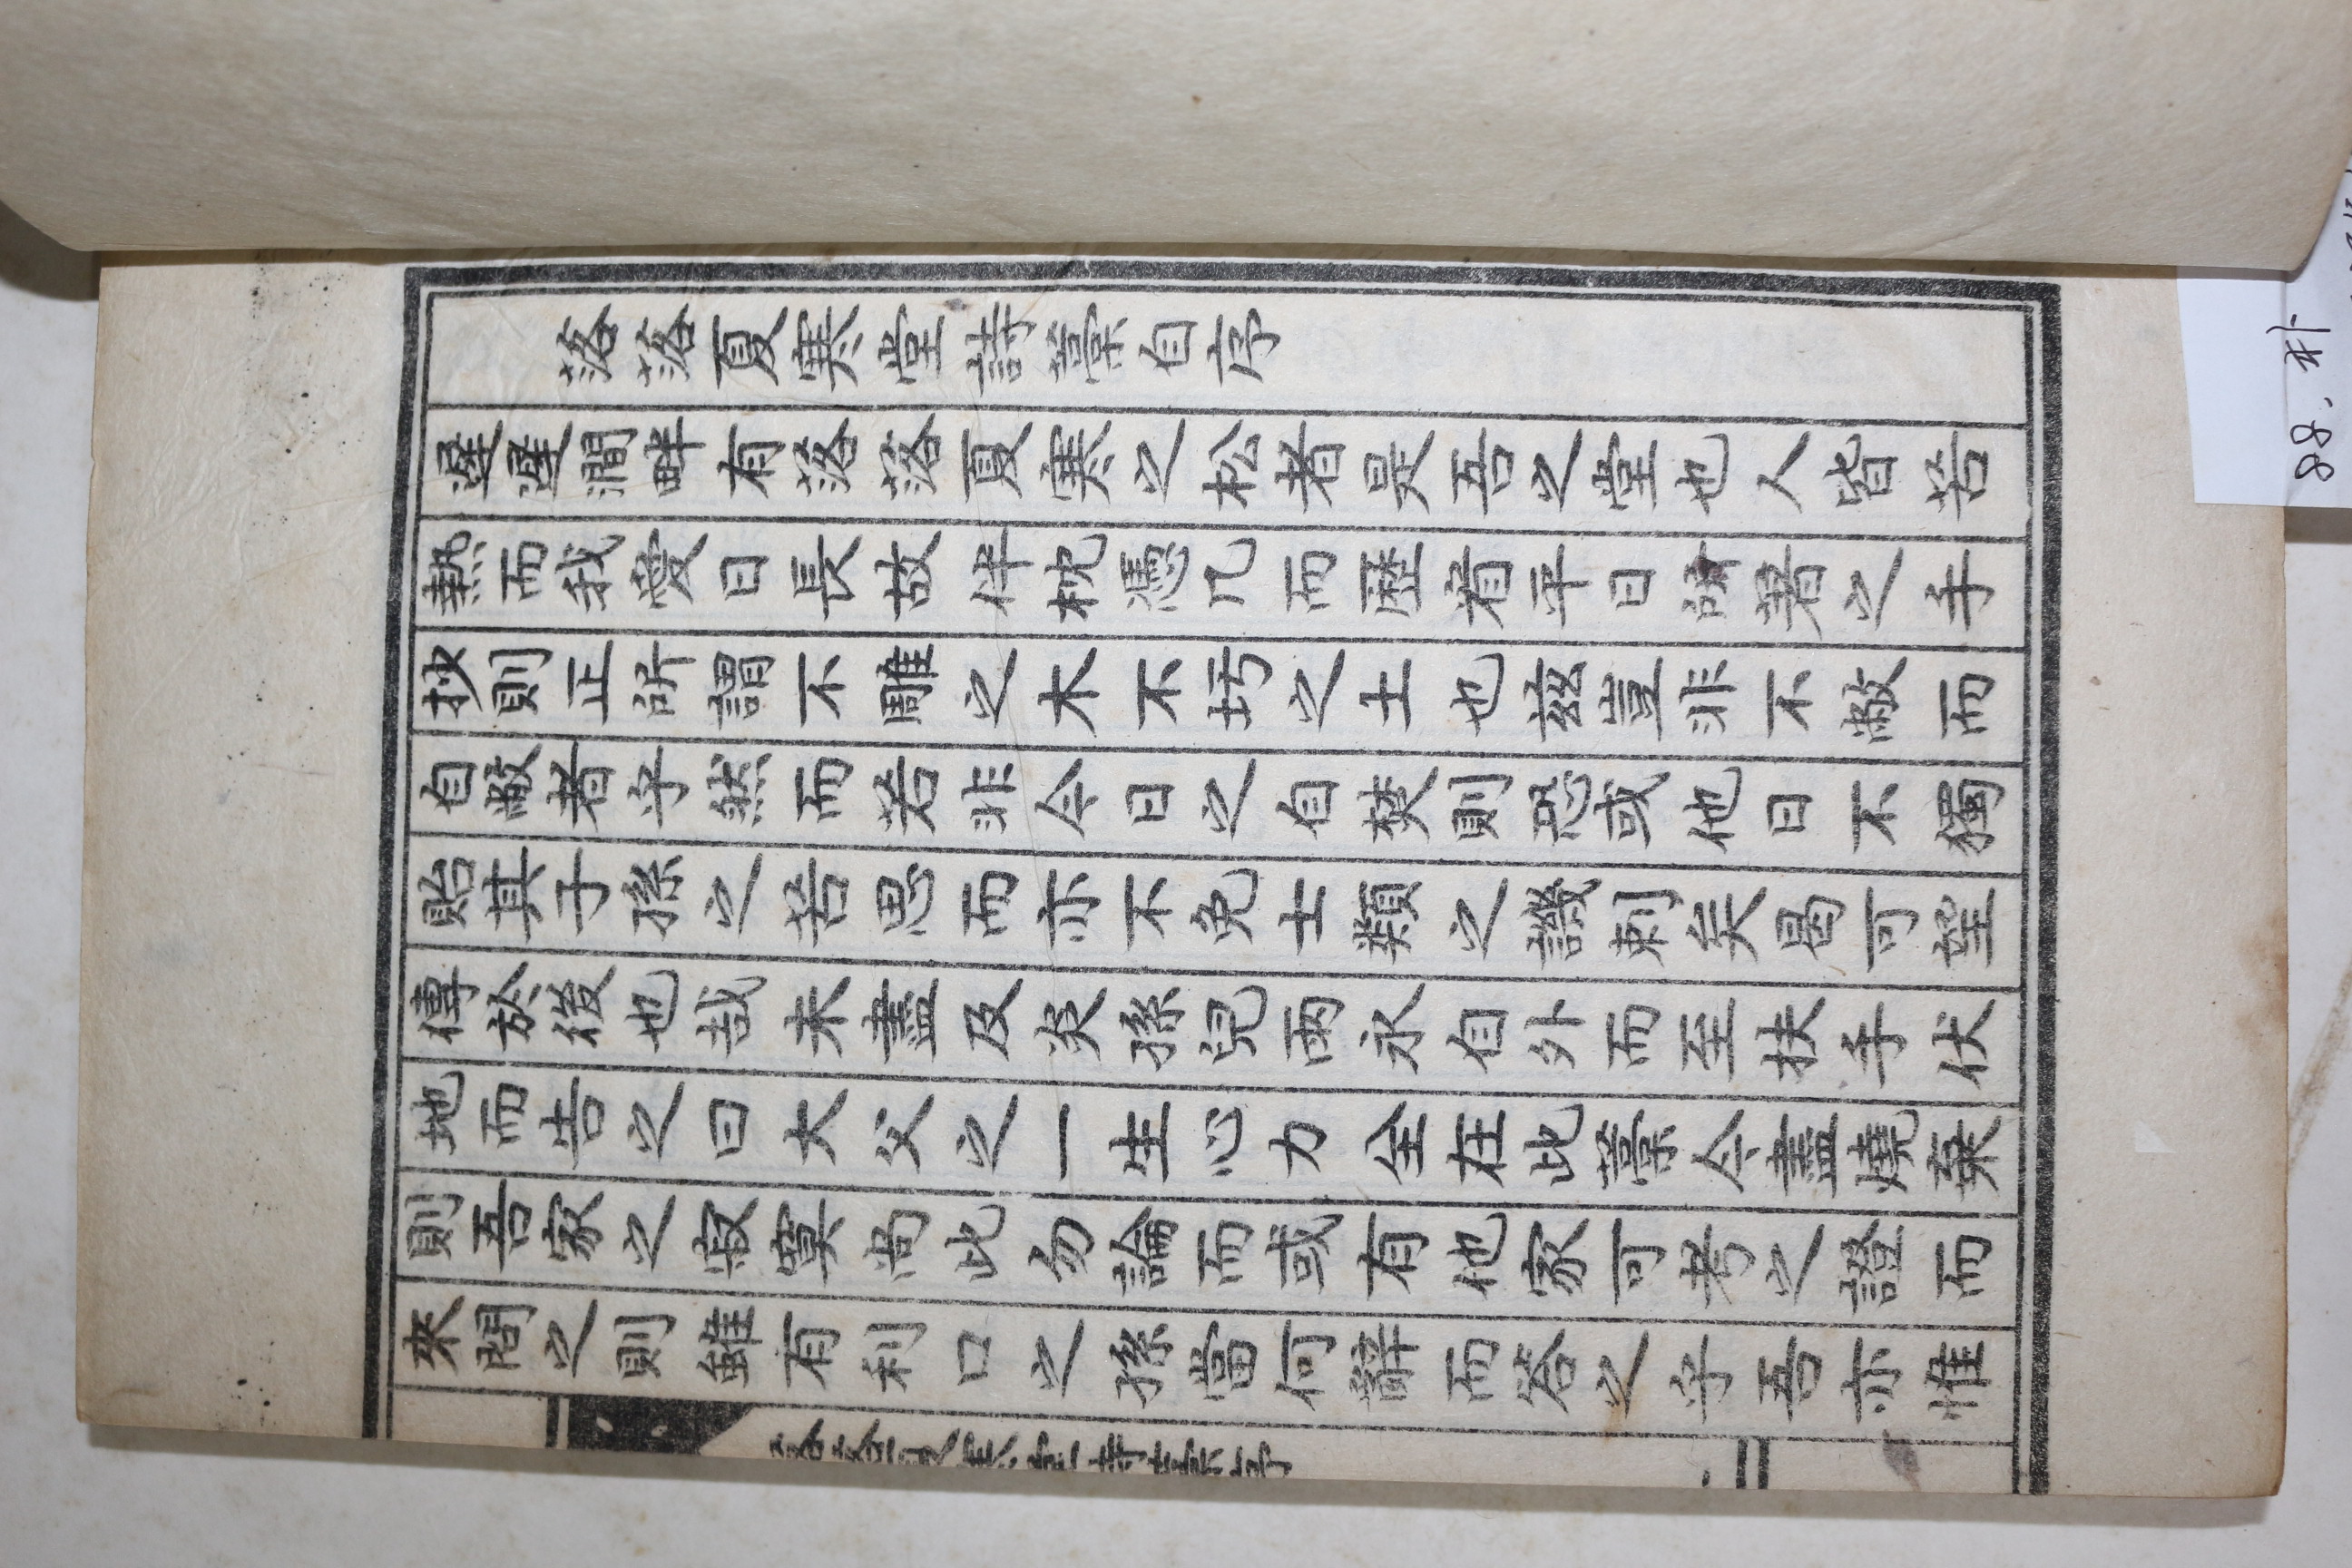 落落夏寒堂詩藁自序
遲遲澗畔有落落夏寒之松者是吾之堂也人皆苦
熱而我愛日長故伴枕憑几而歷看平日所著之手
抄則正所謂不雕之木不圬之土也茲豈非不敝而
自敝者乎然而若非今日之自焚則恐或他日不獨
貽其子孫之苦思而亦不免士類之譏刺矣曷可望
傳於後也哉未盡及炎孫兒兩永自外而至扶手伏
地而告之曰大父之一生心力全在此藁今盡燒棄
則吾家之寂寞尚此勿論而或有他家可考之證而
來問之則雖有利口之孫當何辭而答之乎吾亦惟
落落夏寒堂詩藁序
一
88. 朴